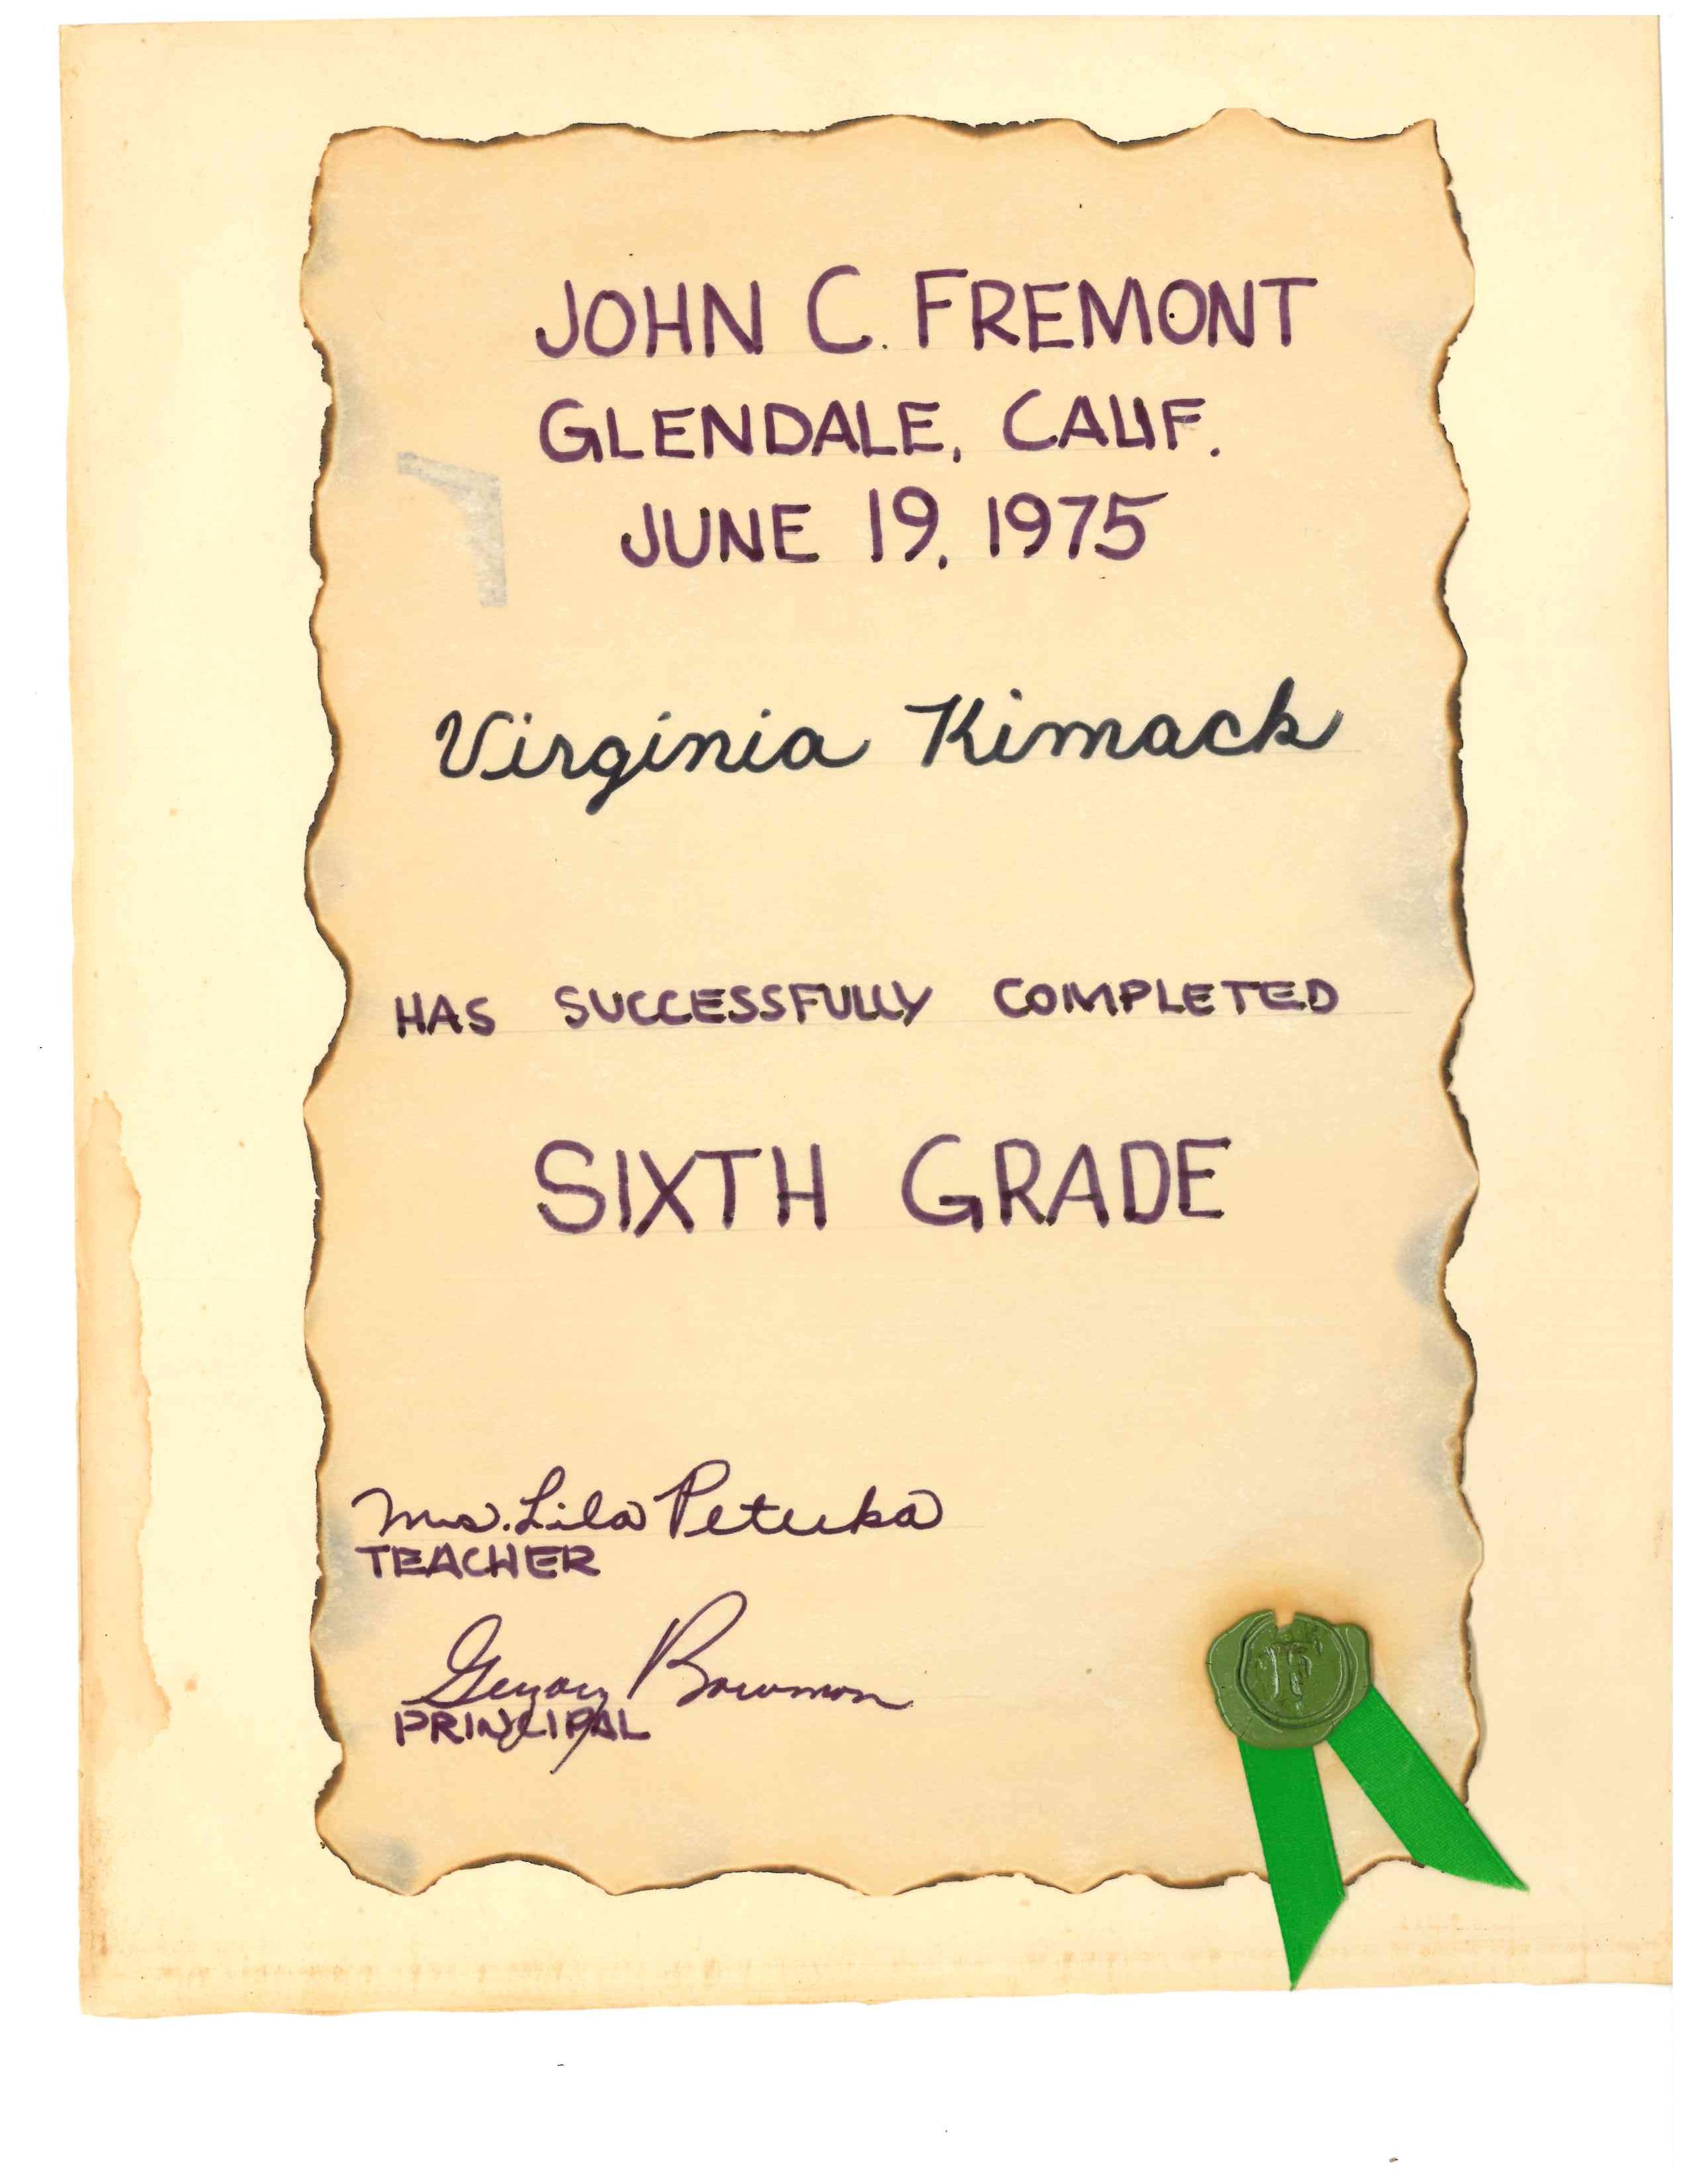 JOHN C. FREMONT
GLENDALE, CALIF.
JUNE 19, 1975
Virginia Kimack
HAS SUCCESSFULLY COMPLETED
SIXTH GRADE
Mrs. Lila Petucka
TEACHER
Bowman
PRINCIPAL